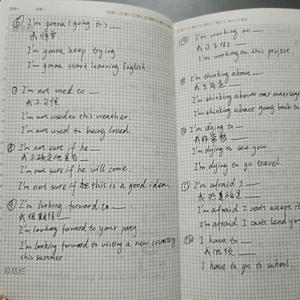 ⑥ I'm gonna (going to) __
我将要
I'm gonna keep trying
I'm gonna start learning English.
I'm not used to __
我不习惯
I'm not used to this weather.
I'm not used to being loved.
⑧ I'm not sure if he __
我不确定他是否
I'm not sure if he will come.
I'm not sure if this is a good idea.
⑨ I'm looking forward to __
我很期待
I'm looking forward to your party.
I'm looking forward to visiting a new country
this summer
总结栏
I'm working on __
I'm working on this project
I'm thinking about __
我在考虑
I'm thinking about our marriage
I'm thinking about going back to
I'm dying to __
I'm dying to see you.
I'm dying to go travel.
I'm afraid I __
I'm afraid I can't accept
I'm afraid I can't lend you
I have to __
我必须
I have to go to school.